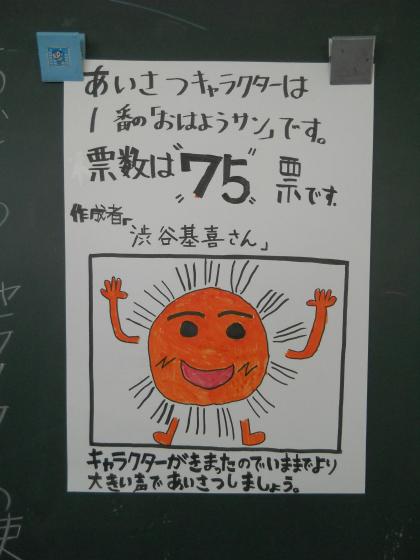 あいさつキャラクターは
1番の「おはようサン」です。
票数は"75"票です。
作成者「渋谷基喜さん」
キャラクターがきまったのでいままでより
大きい声であいさつしましょう。